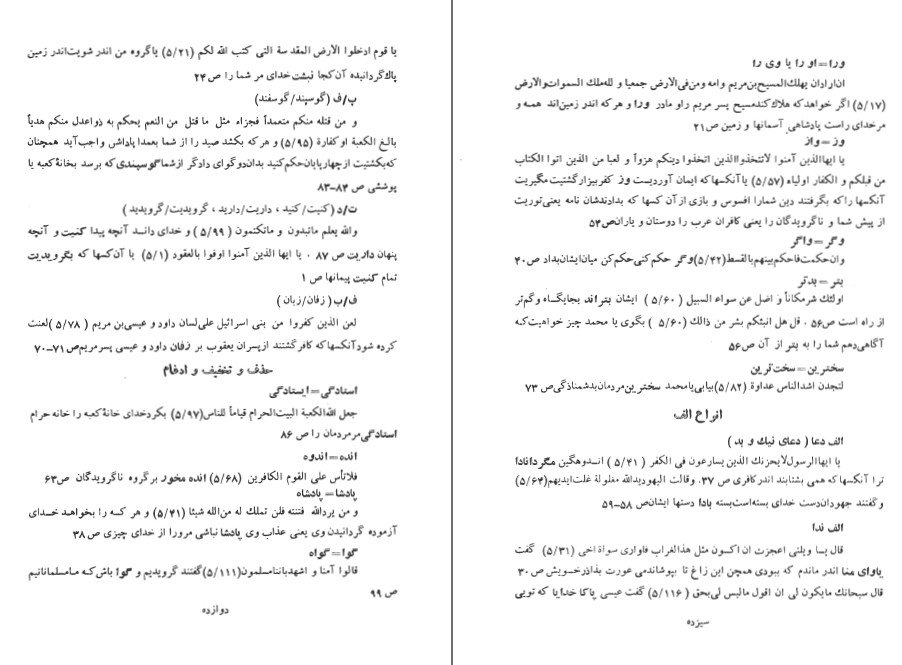 یا قوم ادخلوا الأرض المقدسة التی کتب الله لکم (۵/۲۱) یا گروه من اندر شویت اندر زمین
پاك گردانیده آن کجا نبشت خدای مر شما را ص ۲۴
پ/ف (گوسپند/گوسفند)
و من قتله منکم متعمداً فجزاء مثل ما قتل من النعم یحکم به ذوا عدل منکم هدیاً
بالغ الکعبة او کفارة (۵/۹۵) و هر که بکشد صید را از شما بعمدا پاداش واجب آید همچنان
که بکشتیت از چهارپایان حکم کنید بدان دو گوای دادگر از شما گوسپندی که برسد بخانهٔ کعبه یا
پوششی ص ۸۴–۸۳
ت/د (کنیت/کنید ، داریت/دارید ، گرویدیت/گرویدید)
والله یعلم ماتبدون و ماتکتمون (۵/۹۹) و خدای دانـد آنچه پیدا کنیت و آنچه
پنهان داریت ص ۸۷ . یا ایها الذین آمنوا اوفوا بالعقود (۵/۱) یا آن کسها که بگرویدیت
تمام کنیت پیمانها ص ۱
ف/ب (زفان/زبان)
لعن الذین کفروا من بنی اسرائیل علی لسان داود و عیسی بن مریم (۵/۷۸) لعنت
کرده شود آنکسها که کافر گشتند از پسران یعقوب بر زفان داود و عیسی پسر مریم ص ۷۱–۷۰
حذف و تخفیف و ادغام
استادگی=ایستادگی
جعل الله الکعبة البیت الحرام قیاماً للناس (۵/۹۷) بکرد خدای خانهٔ کعبه را خانه حرام
استادگی مر مردمان را ص ۸۶
انده=اندوه
فلا تأس علی القوم الکافرین (۵/۶۸) انده مخور بر گروه ناگرویدگان ص ۶۳
پادشا=پادشاه
و من یرد الله فتنته فلن تملك له من الله شیئا (۵/۴۱) و هر که را بخواهد خـدای
آزموده گردانیدن وی یعنی عذاب وی پادشا نباشی مرورا از خدای چیزی ص ۳۸
گوا=گواه
قالوا آمنا و اشهد باننا مسلمون (۵/۱۱۱) گفتند گرویدیم و گوا باش که ما مسلمانانیم
ص ۹۹
دوازده
ورا=او را یا وی را
ان اراد ان یهلك المسیح بن مریم و امه و من فی الارض جمیعا و لله ملك السموات والارض
(۵/۱۷) اگر خواهد که هلاك کند مسیح پسر مریم را و مادر ورا و هر که اندر زمین اند همـه و
مر خدای راست پادشاهی آسمانها و زمین ص ۲۱
وز=واز
یا ایها الذین آمنوا لاتتخذوا الذین اتخذوا دینکم هزواً و لعبا من الذین اتوا الکتاب
من قبلکم و الکفار اولیاء (۵/۵۷) یا آنکسها که ایمان آوردیست وز کفر بیزار گشتیت مگیریت
آنکسها را که بگرفتند دین شما را افسوس و بازی از آن کسها که بدادندشان نامه یعنی توریت
از پیش شما و ناگرویدگان را یعنی کافران عرب را دوستان و یاران ص ۵۴
وگر=واگر
وان حکمت فاحکم بینهم بالقسط (۵/۴۲) وگر حکم کنی حکم کن میان ایشان بداد ص ۴۰
بتر=بدتر
اولئك شر مکاناً و اضل عن سواء السبیل (۵/۶۰) ایشان بتر اند بجایگـاه و گم‌تر
از راه است ص ۵۶ . قل هل انبئکم بشر من ذالك (۵/۶۰) بگوی یا محمد چیز خواهیت که
آگاهی دهم شما را به بتر از آن ص ۵۶
سختر‌ین=سخت‌ترین
لتجدن اشد الناس عداوة (۵/۸۲) بیابی یا محمد سخترین مردمان بدشمناذگی ص ۷۳
انواع الف
الف دعا (دعای نیك و بد)
یا ایها الرسول لایحزنك الذین یسارعون فی الکفر (۵/۴۱) اندوهگین مگردانادا
ترا آنکسها که همی بشتابند اندر کافری ص ۳۷ . وقالت الیهود ید الله مغلولة غلت ایدیهم (۵/۶۴)
و گفتند جهودان دست خدای بسته است بسته بادا دستها ایشان ص ۵۸–۵۹
الف ندا
قال یـا ویلتی اعجزت ان اکسون مثل هذا الغراب فاواری سواة اخی (۵/۳۱) گفت
یاوای منا اندر ماندم که ببودی همچن این زاغ تا بپوشاندمی عورت بذاذر خویش ص ۳۰
قال سبحانك مایکون لی ان اقول مالیس لی بحق (۵/۱۱۶) گفت عیسی پاکا خدایا که تویی
سیزده